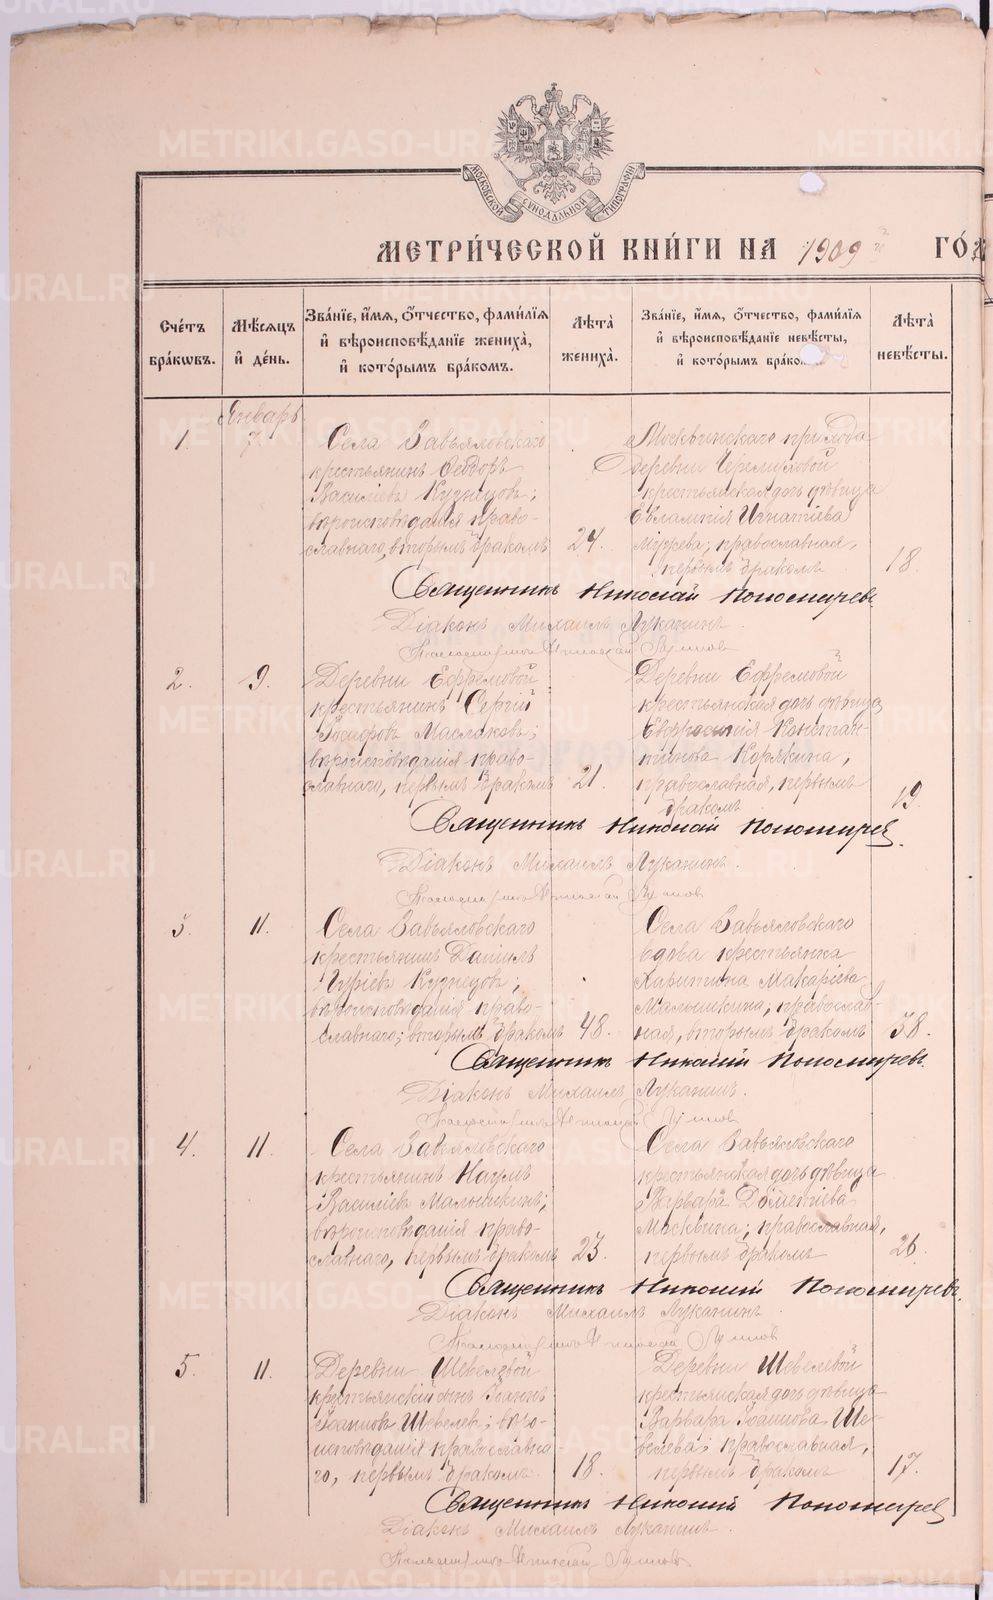 МОСКОВСКОЙ СѴНОДАЛЬНОЙ ТИПОГРАФІИ
МЕТРИ́ЧЕСКОЙ КНИ́ГИ НА 1909 ГО́Д
Сче́тъ бра́кωвъ.
Мѣ́сѧцъ и҆ де́нь.
Зва́нїе, и҆́мѧ, ѻ҆́тчество, фами́лїѧ и҆ вѣроисповѣ́данїе жениха̀, и҆ кото́рымъ бра́комъ.
Лѣта̀ жениха̀.
Зва́нїе, и҆́мѧ, ѻ҆́тчество, фами́лїѧ и҆ вѣроисповѣ́данїе невѣ́сты, и҆ кото́рымъ бра́ко
Лѣта̀ невѣ́сты.
Январь
1. 7.
Села Завьяловскаго
крестьянинъ Ѳеодоръ
Васильевъ Кузнецовъ;
вѣроисповѣданія право-
славнаго, вторымъ бракомъ
24.
Москвинскаго прихода
деревни Черемховой
крестьянская дочь дѣвица
Евлампія Игнатіева
православная,
первымъ бракомъ
18.
Священникъ Николай Пономаревъ
Діаконъ Михаилъ Луканинъ.
2. 9.
Деревни Ефремовой
крестьянинъ Сергій
Іосифовъ Маслаковъ;
вѣроисповѣданія право-
славнаго, первымъ бракомъ
21.
Деревни Ефремовой
крестьянская дочь дѣвица
Евфросинія Констан-
тинова Корякина;
православная, первымъ
бракомъ
19.
Священникъ Николай Пономарев
Діаконъ Михаилъ Луканинъ.
3. 11.
Села Завьяловскаго
крестьянинъ Даніилъ
Гуріевъ Кузнецовъ,
вѣроисповѣданія право-
славнаго; вторымъ бракомъ
48.
Села Завьяловскаго
вдова крестьянка
Харитина Макаріева
Малышкина; православ-
ная, вторымъ бракомъ
38.
Священникъ Николай Пономаревъ.
Діаконъ Михаилъ Луканинъ.
4. 11.
Села Завьяловскаго
крестьянинъ Наумъ
Васильевъ Малышкинъ;
вѣроисповѣданія право-
славнаго, первымъ бракомъ
23.
Села Завьяловскаго
крестьянская дочь дѣвица
Варвара Дометіева
Москвина; православная,
первымъ бракомъ
26.
Священникъ Николай Пономаревъ.
Діаконъ Михаилъ Луканинъ.
5. 11.
Деревни Шевелевой
крестьянскій сынъ Іоаннъ
Іоанновъ Шевелев; вѣро-
исповѣданія православна-
го, первымъ бракомъ.
18.
Деревни Шевелевой
крестьянская дочь дѣвица
Варвара Іоаннова Ше-
велева; православная,
первымъ бракомъ
17.
Священникъ Николай Пономарев
Діаконъ Михаилъ Луканинъ.
METRIKI.GASO-URAL.RU